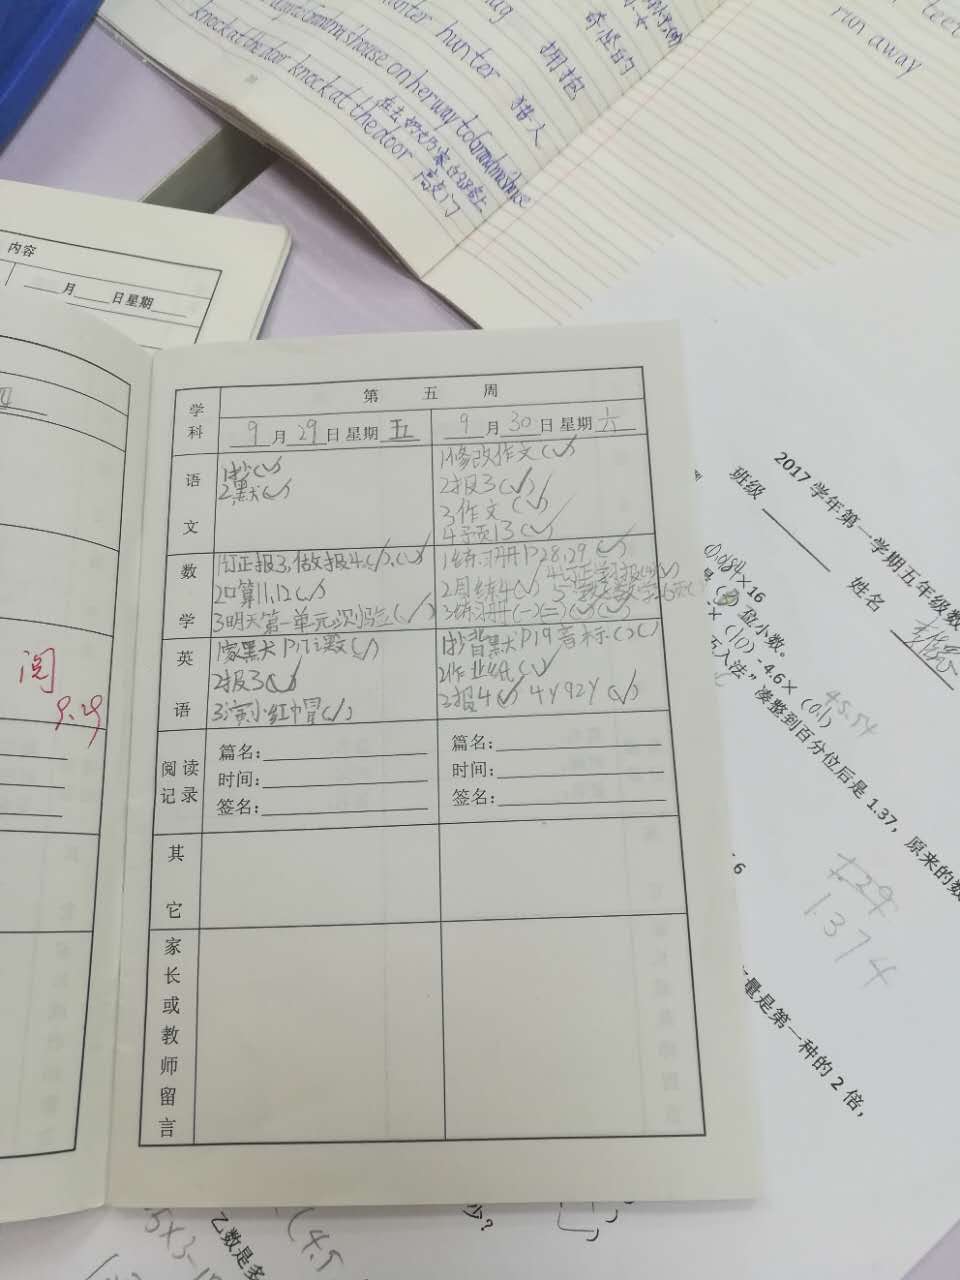 hunter hunter 猎人
拥抱
奇怪的
grandma's house on her way to Grandma's house
在去奶奶家的路上
knock at the door knock at the door 敲门
run away
内容
月 日 星期
第五周
学科
9月29日 星期五
9月30日 星期六
语文
1抄(✓)
2默(✓)
1修改作文(✓)
2报3(✓)
3作文(✓)
4预13(✓)
数学
1订正报3,做报4(✓)(✓)
2口算11,12(✓)
3明天第一单元测验(✓)
1练习册P28,29(✓)
2周练4(✓)
3练习册(一)(二)(✓)(✓)
英语
1家默P17课文(✓)
2报3(✓)
3演小红帽(✓)
1抄背默P19音标()()
2作业纸(✓)
3报4(✓)
阅读记录
篇名:
时间:
签名:
篇名:
时间:
签名:
其它
家长或教师留言
阅
9.29
2017学年第一学期五年级数
班级 姓名
×16
位小数。
-4.6×(0.1)
45.54
五入法”凑整到百分位后是1.37,原来的数
1.29
1.374
量是第一种的2倍,
少?
乙数是多
(4.5